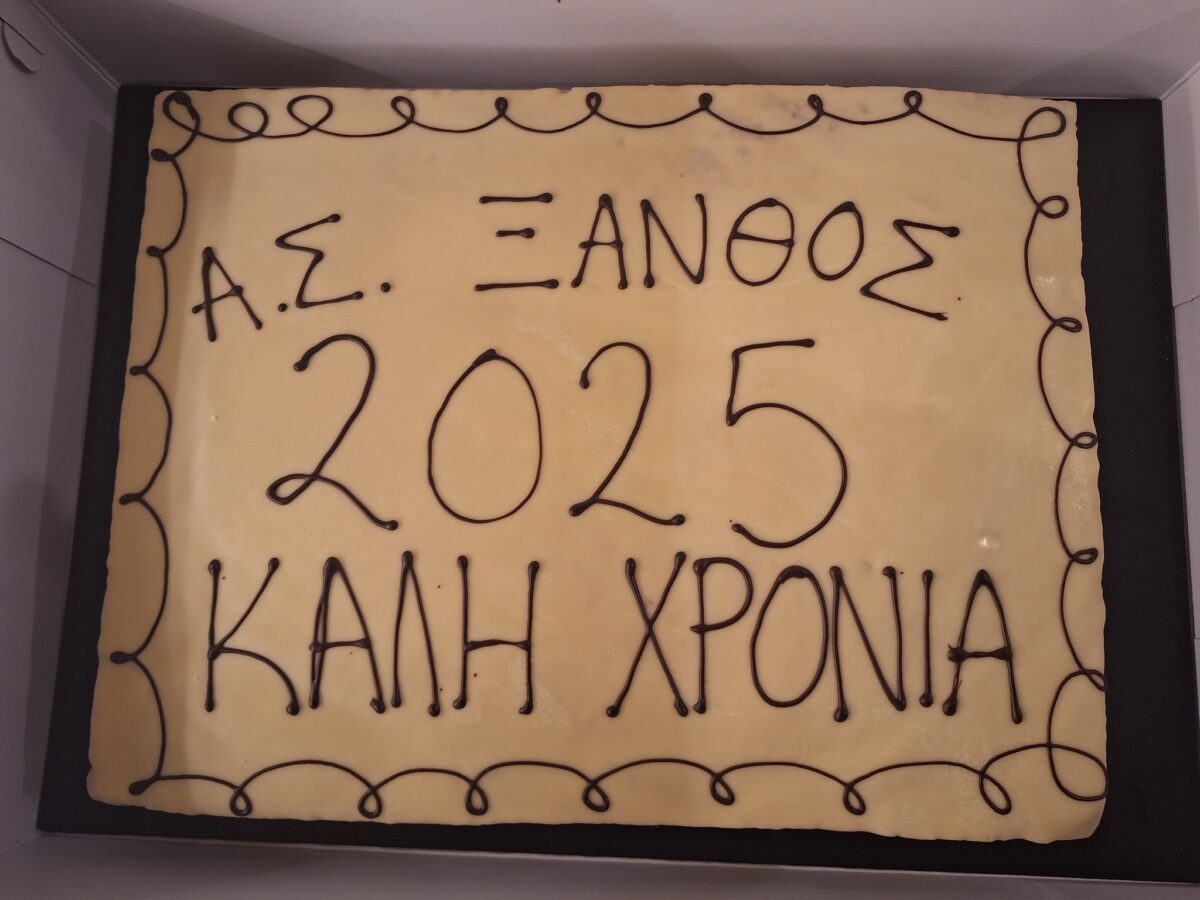 Α.Σ. ΞΑΝΘΟΣ
2025
ΚΑΛΗ ΧΡΟΝΙΑ